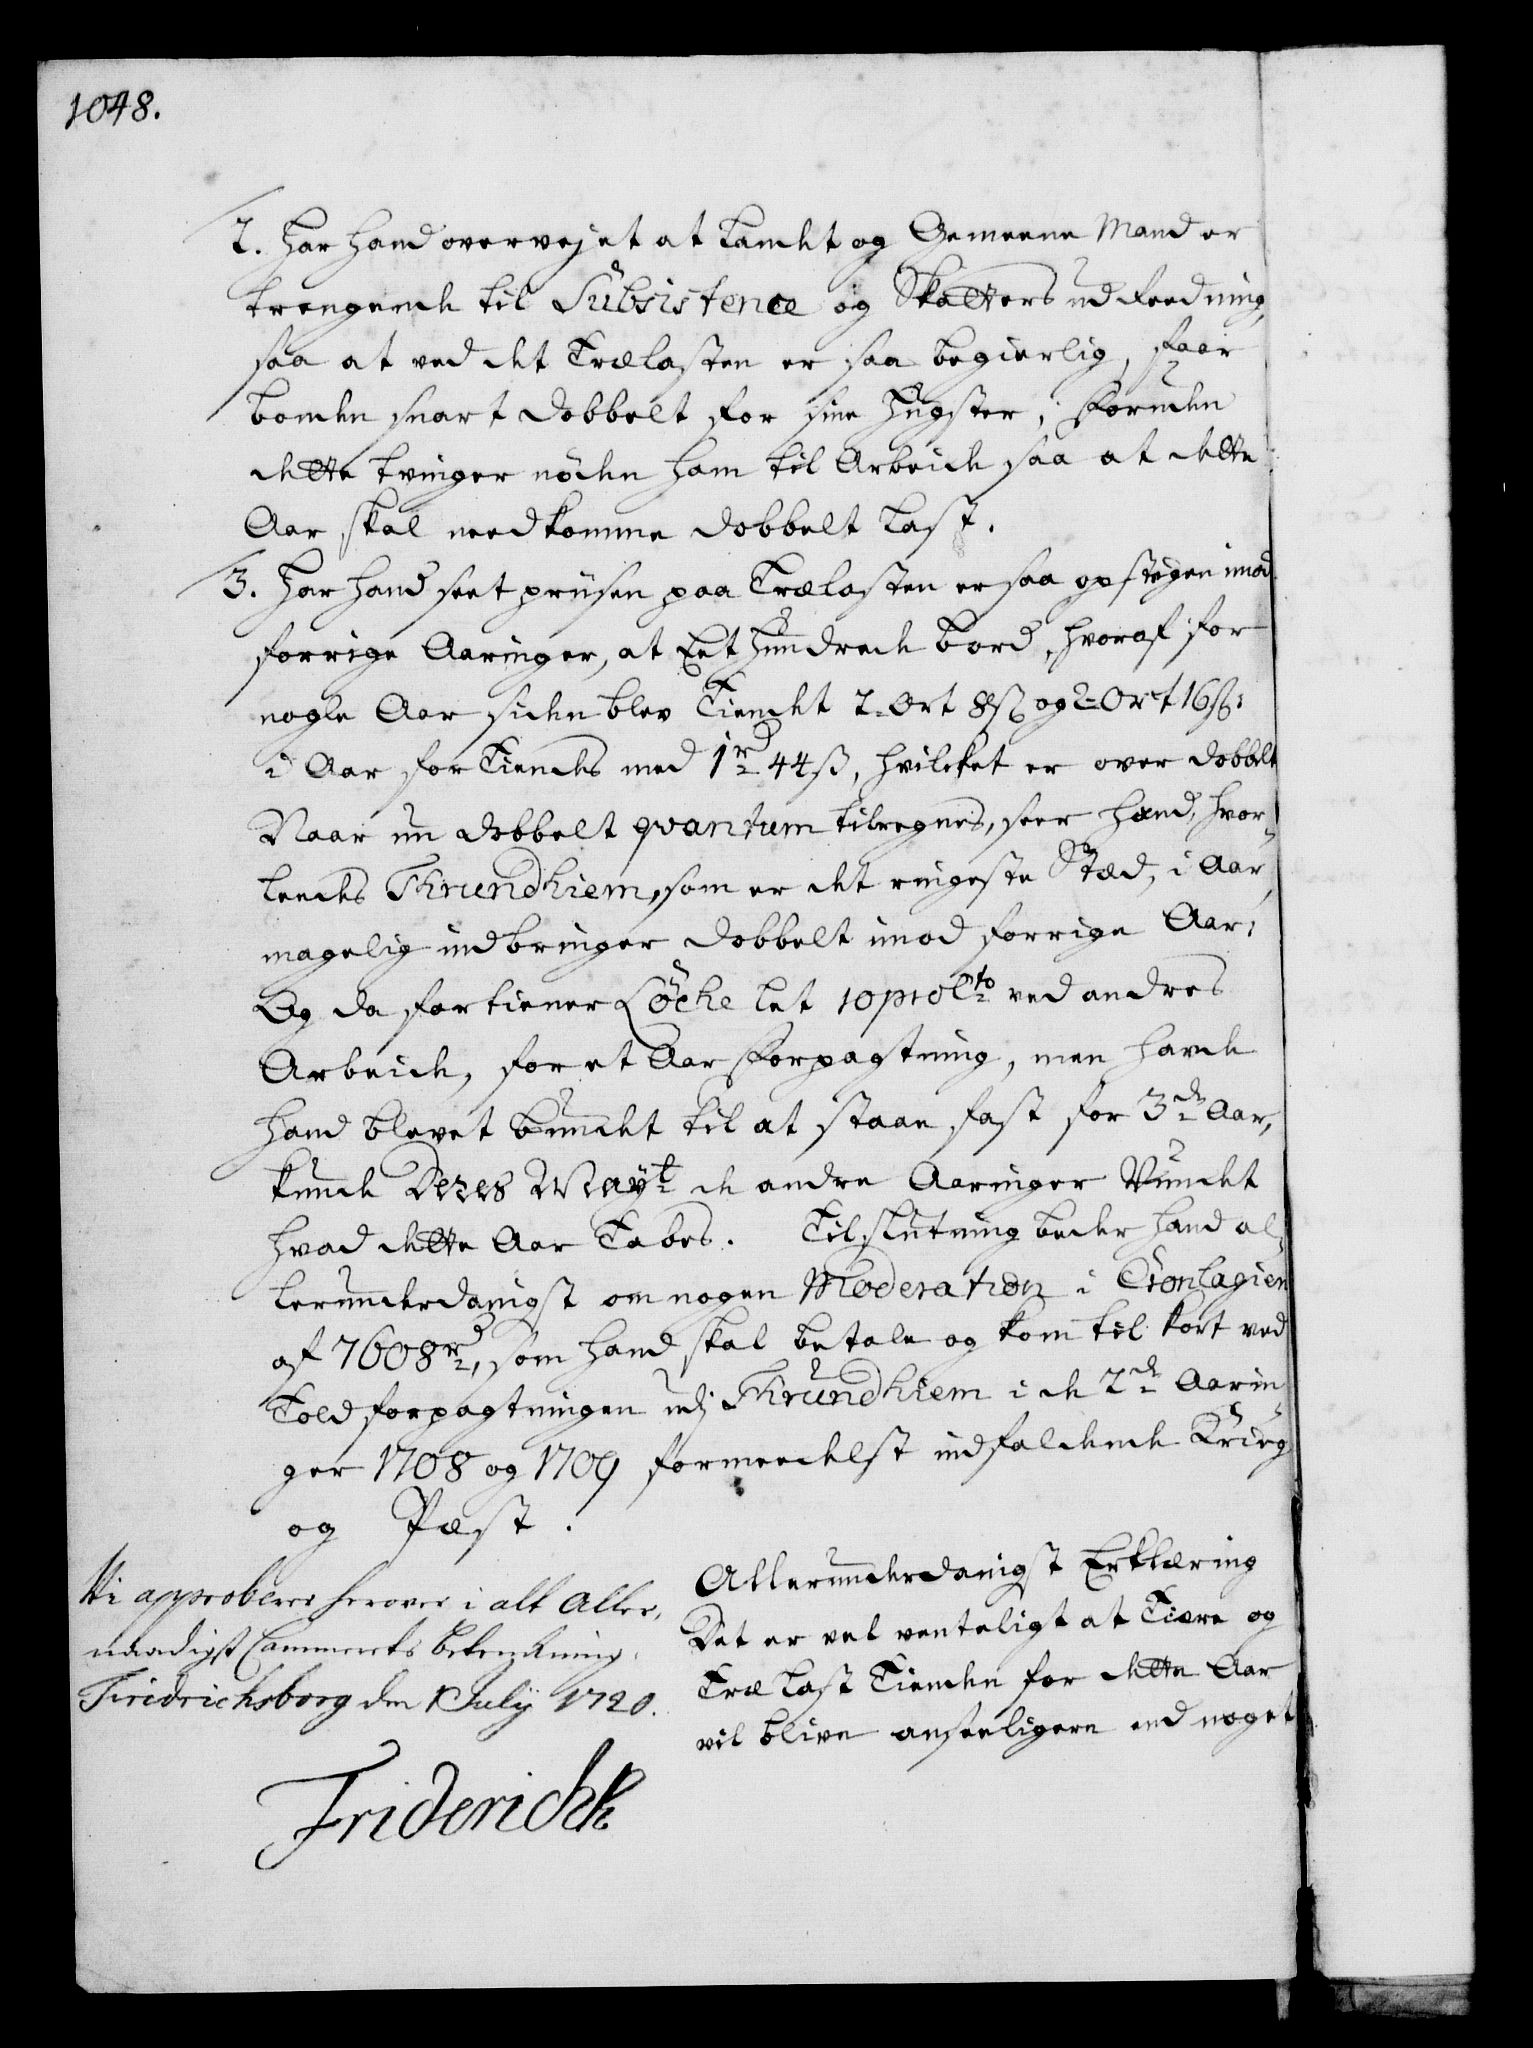 1048.
2. Har hand overvejet at Landet og Gemeene Mand er
trengende til Subsistence og Skatters udreedning,
saa at ved det Trælasten er saa begierlig, faar
bonden snart dobbelt for sine Hugster, foruden
dette tvinger nöden ham til Arbeide saa at dette
Aar skal needkomme dobbelt Last.
3. Har hand seet priisen paa Trælasten er saa opstigen imod
forrige Aaringer, at Eet Hundrede bord, hvoraf for
nogle Aar siden blev Tiendet 2 Ort 8 ß og 2 Ort 16 ß:
i Aar for Tiendes med 1 rd 44 ß, hvilcket er over dobbelt
Naar nu dobbelt qvantum tilregnes, seer hand, hvor-
ledes Thrundhiem, som er det ringeste Stæd, i Aar
magelig indbringer dobbelt imod forrige Aar:
Og da fortiener Löche let 10 pro Cto ved andres
Arbeide, for et Aars Forpagtning, men havde
hand blevet bundet til at staae fast for 3de Aar,
kunde Deres Mayt de andre Aaringer Vundet
hvad dette Aar Tabes. Til slutning beder hand al-
lerunderdanigst om nogen Moderation i
af 7608 rd, som hand skal betale og kom til kort ved
Told forpagtningen udj Thrundhiem i de 2de Aarin-
ger 1708 og 1709 formedelst indfaldende Kriig
og Pæst.
Vi approberer herover i alt Aller-
naadigst Cammerets betenkning.
Fridrichsborg den 1 Julij 1720.
Friderich R
Allerunderdanigst Erklæring
Det er vel venteligt at Tiære og
Træ Last Tienden for dette Aar
vil blive anseeligere end noget